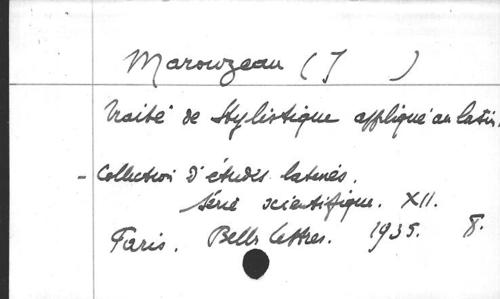 Marouzeau (J )
Traité de Stylistique appliqué au latin.
- Collection d'études latines.
Série scientifique. XII.
Paris. Belles Lettres. 1935. 8.